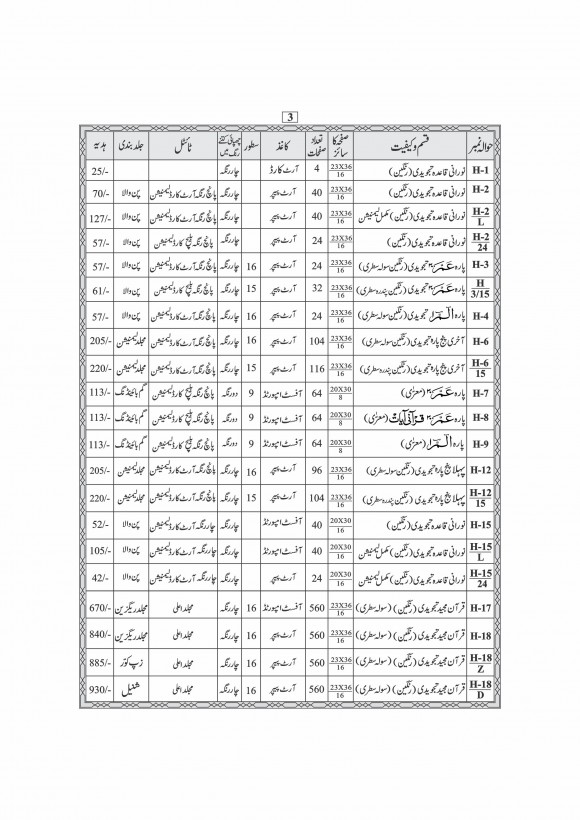 3
حوالہ نمبر قسم و کیفیت صفحہ کا سائز تعداد صفحات کاغذ سطور چھپائی کتنے رنگ میں ٹائٹل جلد بندی ہدیہ
H-1 نورانی قاعدہ تجویدی (رنگین) 23X36/16 4 آرٹ کارڈ چار رنگہ 25/-
H-2 نورانی قاعدہ تجویدی (رنگین) 23X36/16 40 آرٹ پیپر چار رنگہ پانچ رنگہ آرٹ کارڈ لیمنیشن پن والا 70/-
H-2/L نورانی قاعدہ تجویدی (رنگین) مکمل لیمنیشن 23X36/16 40 آرٹ پیپر چار رنگہ پانچ رنگہ آرٹ کارڈ لیمنیشن پن والا 127/-
H-2/24 نورانی قاعدہ تجویدی (رنگین) 23X36/16 24 آرٹ پیپر چار رنگہ پانچ رنگہ بلیچ کارڈ لیمنیشن پن والا 57/-
H-3 پارہ عَمَّ تجویدی (رنگین سولہ سطری) 23X36/16 24 آرٹ پیپر 16 چار رنگہ پانچ رنگہ آرٹ کارڈ لیمنیشن پن والا 57/-
H/3/15 پارہ عَمَّ تجویدی (رنگین پندرہ سطری) 23X36/16 32 آرٹ پیپر 15 چار رنگہ پانچ رنگہ بلیچ کارڈ لیمنیشن پن والا 61/-
H-4 پارہ الٓمّٓ تجویدی (رنگین سولہ سطری) 23X36/16 24 آرٹ پیپر 16 چار رنگہ پانچ رنگہ آرٹ کارڈ لیمنیشن پن والا 57/-
H-6 آخری پنج پارہ تجویدی (رنگین سولہ سطری) 23X36/16 104 آرٹ پیپر 16 چار رنگہ پانچ رنگہ آرٹ کارڈ لیمنیشن مجلد لیمنیشن 205/-
H-6/15 آخری پنج پارہ تجویدی (رنگین پندرہ سطری) 23X36/16 116 آرٹ پیپر 15 چار رنگہ پانچ رنگہ آرٹ کارڈ لیمنیشن مجلد لیمنیشن 220/-
H-7 پارہ عَمَّ (معرّیٰ) 20X30/8 64 آفسٹ امپورٹڈ 9 دو رنگہ پانچ رنگہ بلیچ کارڈ لیمنیشن گم بائینڈنگ 113/-
H-8 پارہ عَمَّ قرآنی آیات (معرّیٰ) 20X30/8 64 آفسٹ امپورٹڈ 9 دو رنگہ پانچ رنگہ بلیچ کارڈ لیمنیشن گم بائینڈنگ 113/-
H-9 پارہ الٓمّٓ (معرّیٰ) 20X30/8 64 آفسٹ امپورٹڈ 9 دو رنگہ پانچ رنگہ بلیچ کارڈ لیمنیشن گم بائینڈنگ 113/-
H-12 پہلا پنج پارہ تجویدی (رنگین سولہ سطری) 23X36/16 96 آرٹ پیپر 16 چار رنگہ پانچ رنگہ آرٹ کارڈ لیمنیشن مجلد لیمنیشن 205/-
H-12/15 پہلا پنج پارہ تجویدی (رنگین پندرہ سطری) 23X36/16 104 آرٹ پیپر 15 چار رنگہ پانچ رنگہ آرٹ کارڈ لیمنیشن مجلد لیمنیشن 220/-
H-15 نورانی قاعدہ تجویدی (رنگین) 20X30/16 40 آفسٹ امپورٹڈ چار رنگہ چار رنگہ آرٹ کارڈ لیمنیشن پن والا 52/-
H-15/L نورانی قاعدہ تجویدی (رنگین) مکمل لیمنیشن 20X30/16 40 آفسٹ امپورٹڈ چار رنگہ چار رنگہ آرٹ کارڈ لیمنیشن پن والا 105/-
H-15/24 نورانی قاعدہ تجویدی (رنگین) مکمل لیمنیشن 20X30/16 24 آرٹ پیپر چار رنگہ چار رنگہ آرٹ کارڈ لیمنیشن پن والا 42/-
H-17 قرآن مجید تجویدی (رنگین) (سولہ سطری) 23X36/16 560 آفسٹ امپورٹڈ 16 چار رنگہ مجلد اعلیٰ مجلد ریگزین 670/-
H-18 قرآن مجید تجویدی (رنگین) (سولہ سطری) 23X36/16 560 آرٹ پیپر 16 چار رنگہ مجلد اعلیٰ مجلد ریگزین 840/-
H-18/Z قرآن مجید تجویدی (رنگین) (سولہ سطری) 23X36/16 560 آرٹ پیپر 16 چار رنگہ مجلد اعلیٰ زپ کور 885/-
H-18/D قرآن مجید تجویدی (رنگین) (سولہ سطری) 23X36/16 560 آرٹ پیپر 16 چار رنگہ مجلد اعلیٰ شنیل 930/-